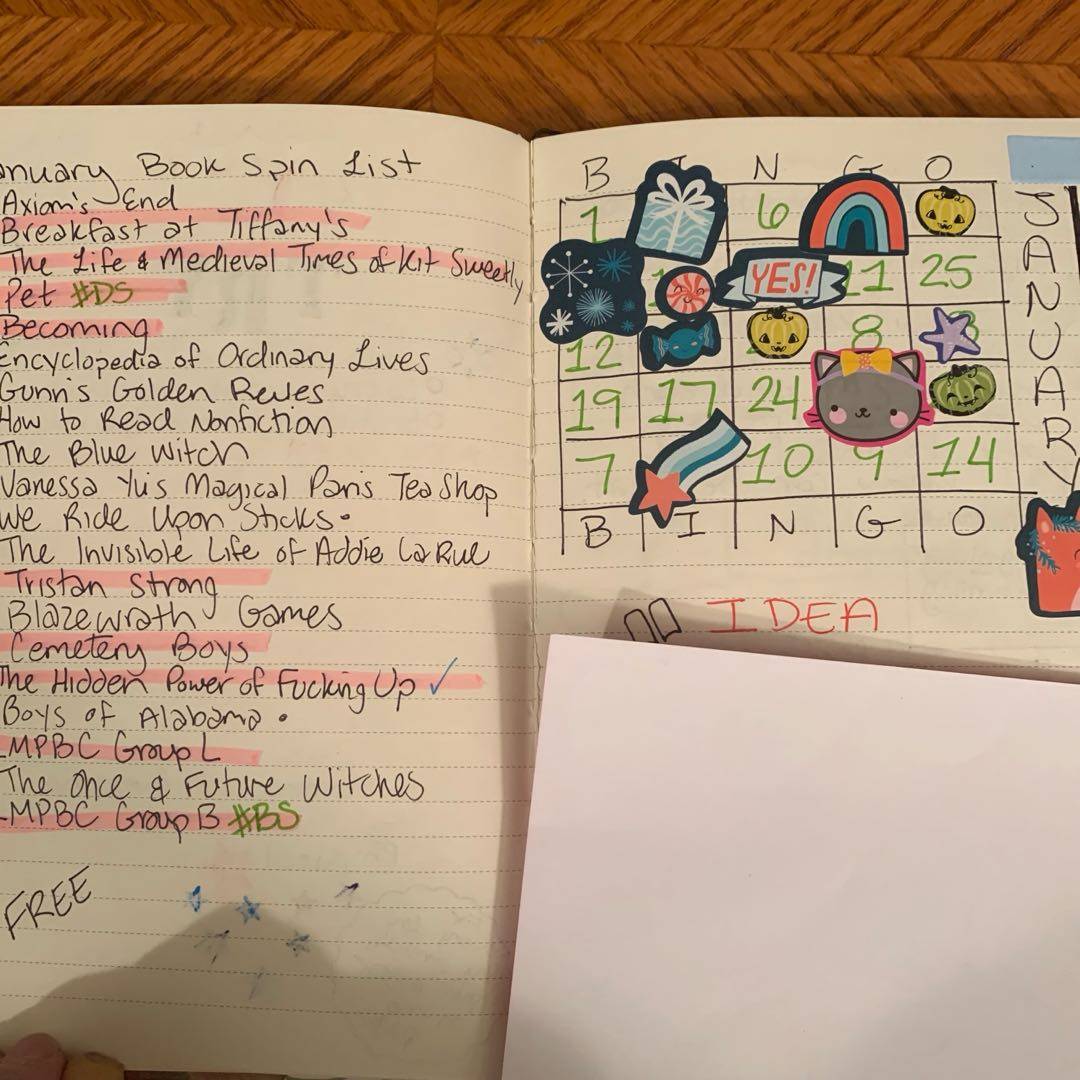 anuary Book Spin List
Axiom's End
Breakfast at Tiffany's
The Life & Medieval Times of Kit Sweetly
Pet #DS
Becoming
Encyclopedia of Ordinary Lives
Gunn's Golden Rules
How to Read Nonfiction
The Blue Witch
Vanessa Yu's Magical Paris Tea Shop
We Ride Upon Sticks
The Invisible Life of Addie La Rue
Tristan Strong
Blazewrath Games
Cemetery Boys
The Hidden Power of Fucking Up ✓
Boys of Alabama
LMPBC Group L
The Once & Future Witches
LMPBC Group B #BS
FREE
B N G O
1 6
YES! 11 25
12 8
19 17 24
7 10 9 14
B I N G O
JANUARY
IDEA